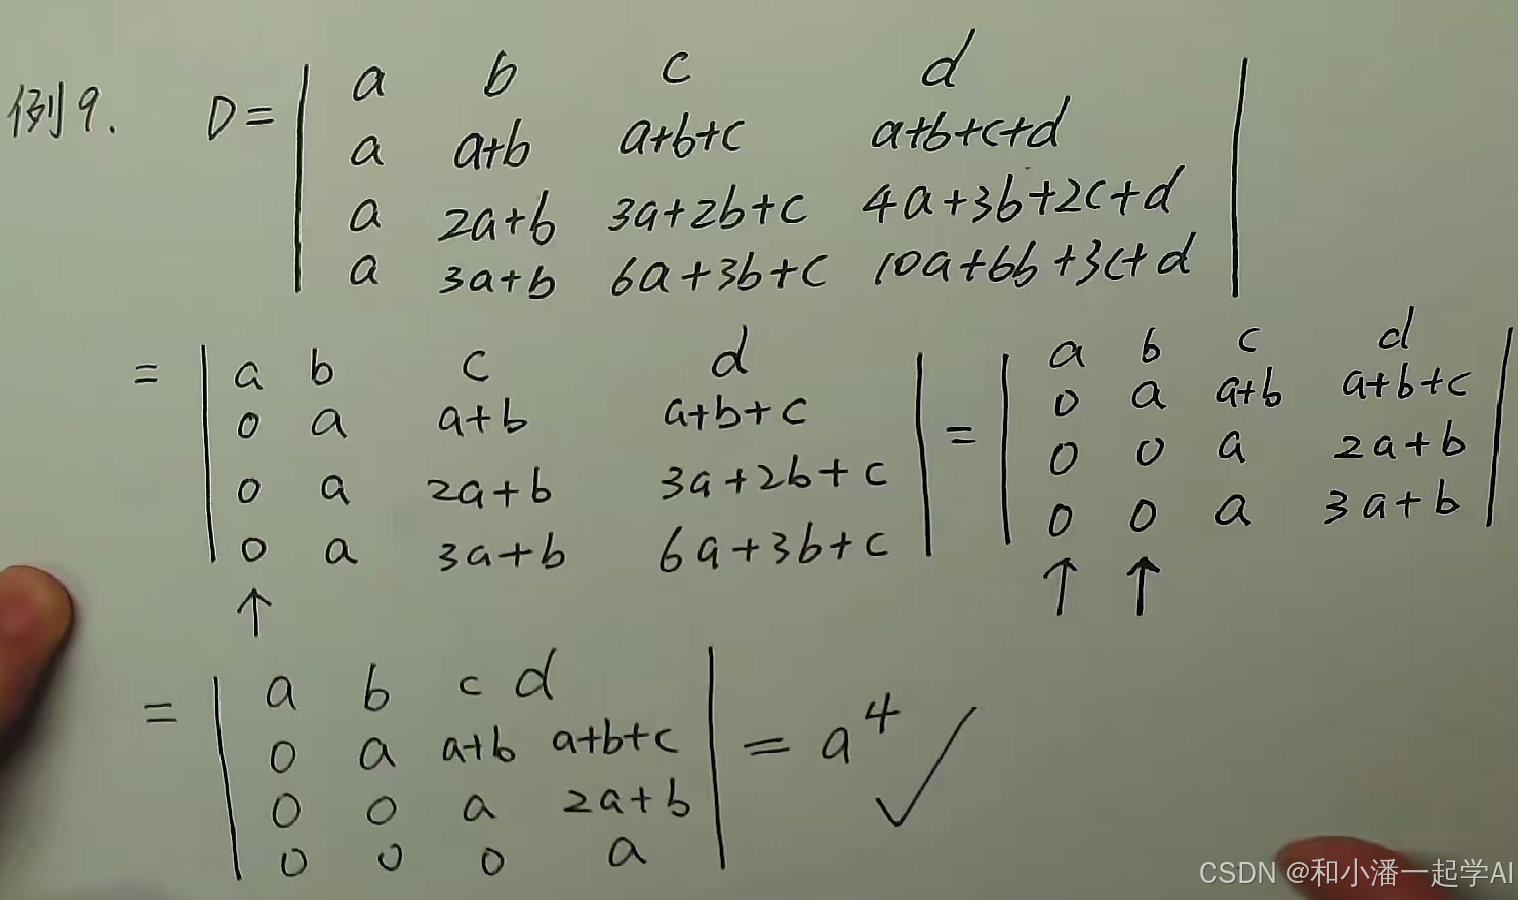 例9. D= | a b c d |
| a a+b a+b+c a+b+c+d |
| a 2a+b 3a+2b+c 4a+3b+2c+d |
| a 3a+b 6a+3b+c 10a+6b+3c+d |
= | a b c d | = | a b c d |
| 0 a a+b a+b+c | | 0 a a+b a+b+c |
| 0 a 2a+b 3a+2b+c | | 0 0 a 2a+b |
| 0 a 3a+b 6a+3b+c | | 0 0 a 3a+b |
↑ ↑ ↑
= | a b c d | = a⁴ ✓
| 0 a a+b a+b+c |
| 0 0 a 2a+b |
| 0 0 0 a |
CSDN @和小潘一起学AI